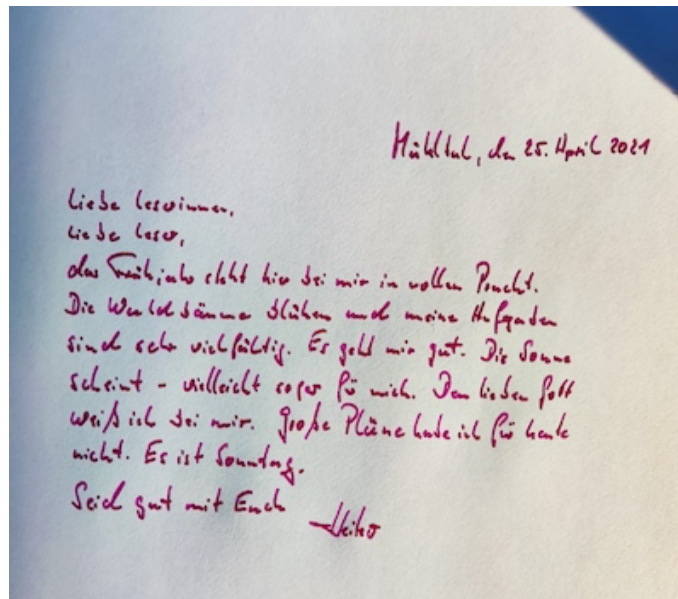 Mühltal, den 25. April 2021
Liebe Leserinnen,
Liebe Leser,
das Frühjahr steht hier bei mir in voller Pracht.
Die Waldbäume blühen und meine Aufgaben
sind sehr vielfältig. Es geht mir gut. Die Sonne
scheint - vielleicht sogar für mich. Den lieben Gott
weiß ich bei mir. Große Pläne habe ich für heute
nicht. Es ist Sonntag.
Seid gut mit Euch
Heiko